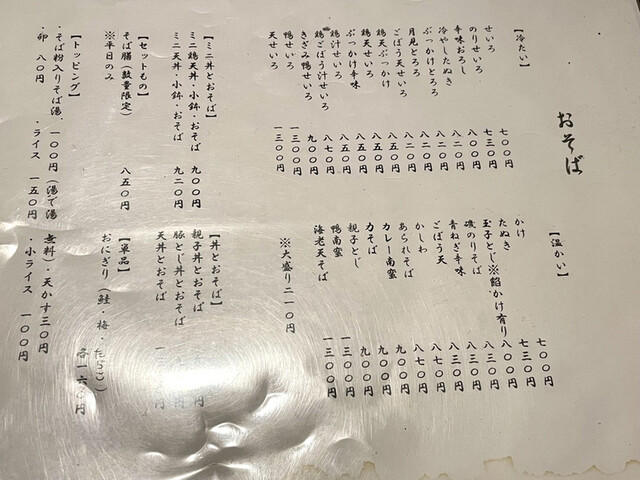 おそば
【冷たい】
せいろ 七〇〇円
のりせいろ 七三〇円
辛味おろし 八〇〇円
冷やしたぬき 八二〇円
ぶっかけとろろ 八二〇円
月見とろろ 八二〇円
ごぼう天せいろ 八二〇円
鶏天ぶっかけ 八五〇円
鶏天せいろ 八五〇円
ぶっかけ辛味 八五〇円
鶏汁せいろ 八五〇円
鶏ごぼう汁せいろ 八七〇円
きざみ鴨せいろ 九〇〇円
鴨せいろ 一三〇〇円
天せいろ 一三〇〇円
【温かい】
かけ 七〇〇円
たぬき 七三〇円
玉子とじ※餡かけ有り 八〇〇円
磯のりそば 八三〇円
青ねぎ辛味 八三〇円
ごぼう天 八三〇円
かしわ 八七〇円
あられそば 八七〇円
カレー南蛮 九〇〇円
力そば 九〇〇円
親子とじ 九〇〇円
鴨南蛮 一三〇〇円
海老天そば 一三〇〇円
※大盛り二一〇円
【ミニ丼とおそば】
ミニ鶏天丼・小鉢・おそば 九〇〇円
ミニ天丼・小鉢・おそば 九二〇円
【丼とおそば】
親子丼とおそば 円
豚とじ丼とおそば 円
天丼とおそば 一
【セットもの】
そば膳（数量限定） 八五〇円
※平日のみ
【単品】
おにぎり（鮭・梅・たらこ）
各一六〇円
【トッピング】
・そば粉入りそば湯 一〇〇円（湯で湯無料）・天かす三〇円
・卵 八〇円 ・ライス 一五〇円 ・小ライス 一〇〇円